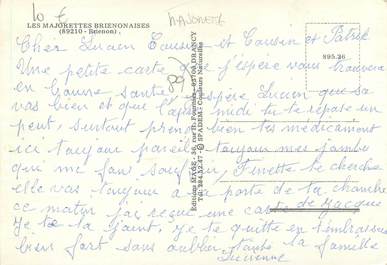 10 €
MAJORETTE
LES MAJORETTES BRIENONAISES
(89210 - Brienon)
895.26
Editions MAGE - 36, rue H. Fournier - 93700 DRANCY
Tél. 284.52.47 - © SPADEM - Couleurs Naturelles
89
Cher Lucien Cousine et Cousin et Patrick
Une petite carte que j'espère vous trouvera
en bonne santé j'espère Lucien que sa
vas bien et que l'après midi tu te repose un
peut, surtout prend bien tes médicament
ici toujour pareil toujour mes jambes
qui me fon souffrir, Finette te cherche
elle vas toujour a la porte de ta chambre
ce matin j'ai reçue une carte de Jacque
Je te la joint. Je te quitte en t'embrassant
bien fort sans oublier toute la famille
Lucienne